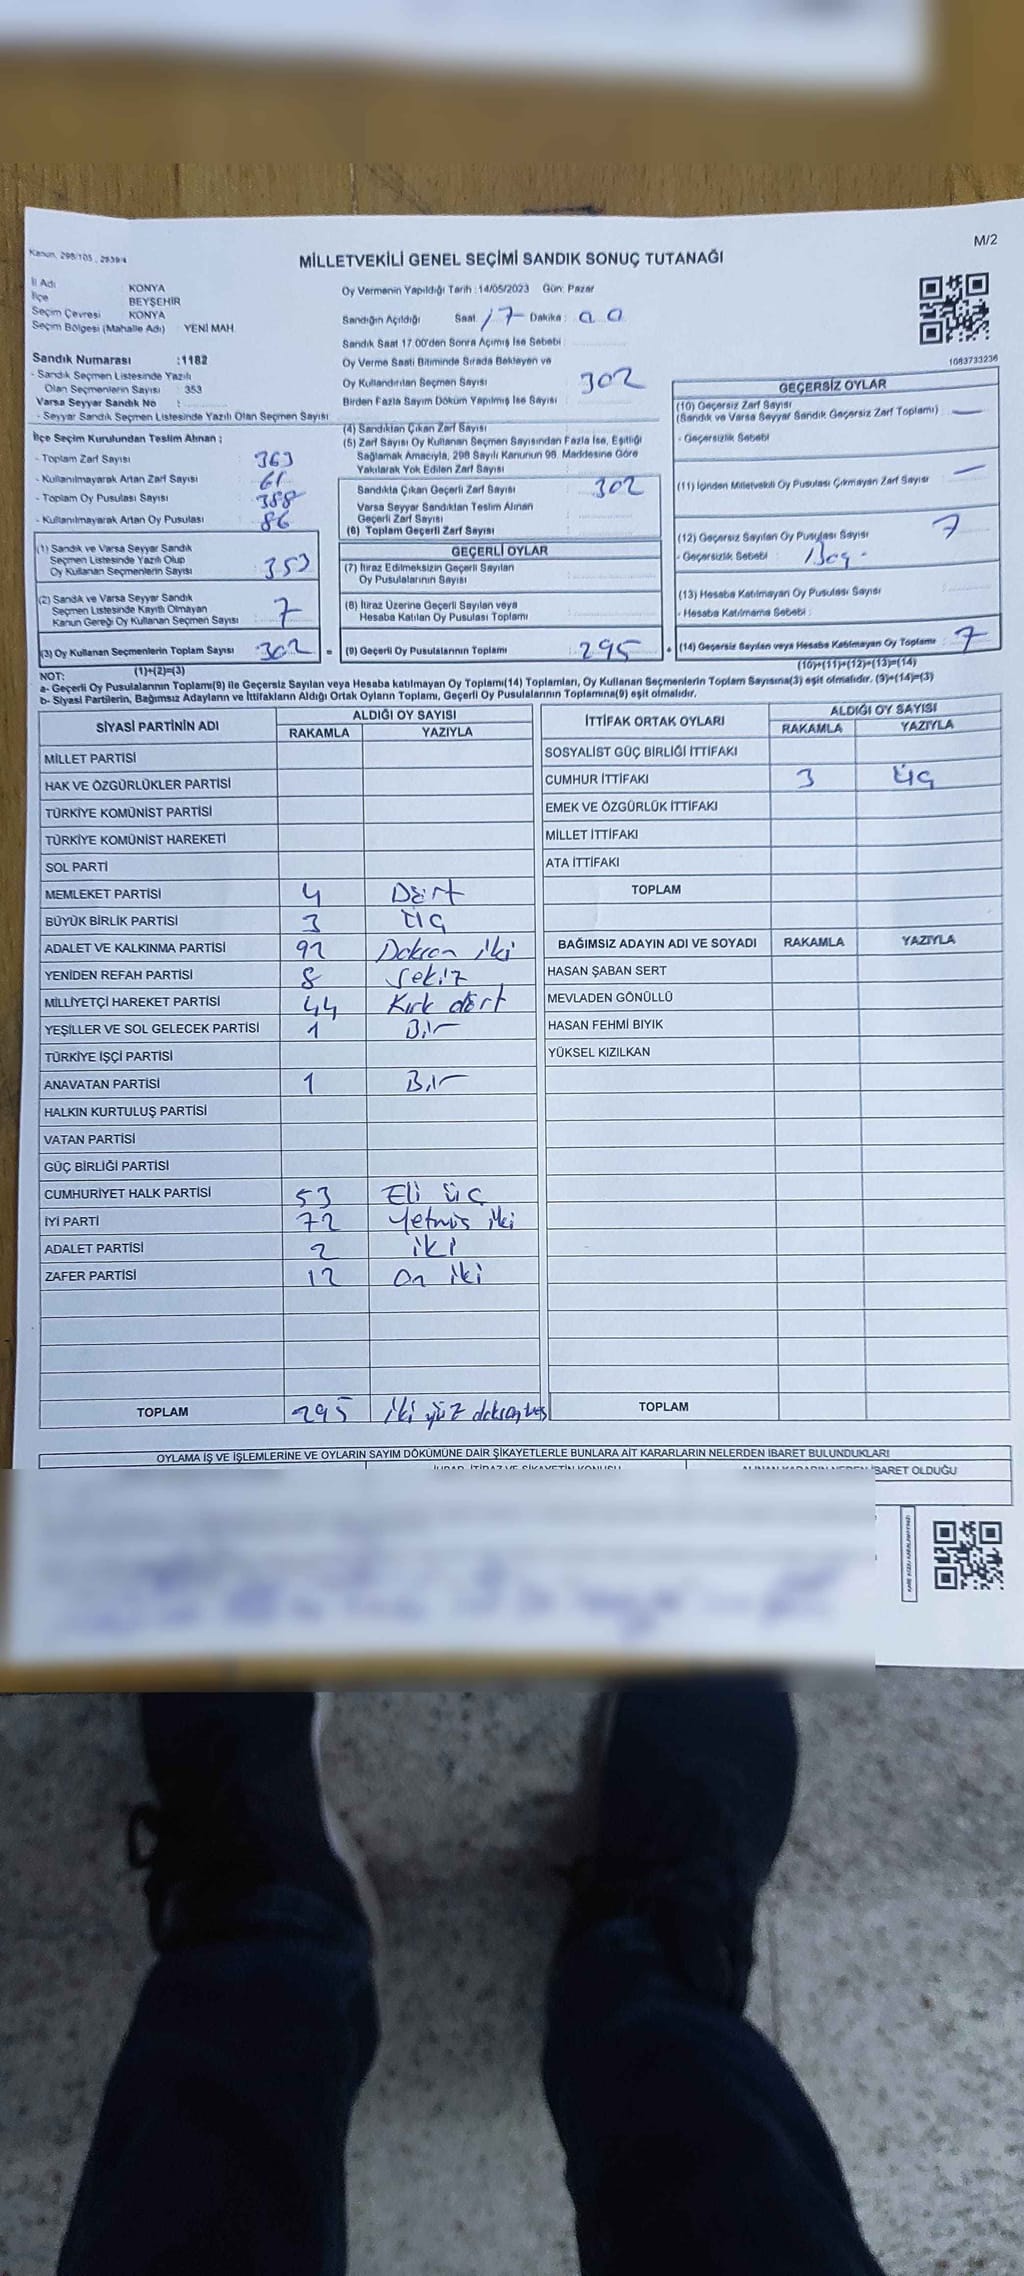 M/2
Kanun, 298/105 , 2839/4
MİLLETVEKİLİ GENEL SEÇİMİ SANDIK SONUÇ TUTANAĞI
İl Adı : KONYA
İlçe : BEYŞEHİR
Seçim Çevresi : KONYA
Seçim Bölgesi (Mahalle Adı) : YENİ MAH.
Sandık Numarası :1182
- Sandık Seçmen Listesinde Yazılı
Olan Seçmenlerin Sayısı : 353
Varsa Seyyar Sandık No :
- Seyyar Sandık Seçmen Listesinde Yazılı Olan Seçmen Sayısı :
Oy Vermenin Yapıldığı Tarih :14/05/2023 Gün: Pazar
Sandığın Açıldığı Saat 17 Dakika : 00
Sandık Saat 17.00'den Sonra Açımış İse Sebebi :
Oy Verme Saati Bitiminde Sırada Bekleyen ve
Oy Kullandırılan Seçmen Sayısı : 302
Birden Fazla Sayım Döküm Yapılmış İse Sayısı :
1083733236
İlçe Seçim Kurulundan Teslim Alınan ;
- Toplam Zarf Sayısı : 363
- Kullanılmayarak Artan Zarf Sayısı : 61
- Toplam Oy Pusulası Sayısı : 388
- Kullanılmayarak Artan Oy Pusulası : 86
(1) Sandık ve Varsa Seyyar Sandık
Seçmen Listesinde Yazılı Olup
Oy Kullanan Seçmenlerin Sayısı : 353
(2) Sandık ve Varsa Seyyar Sandık
Seçmen Listesinde Kayıtlı Olmayan
Kanun Gereği Oy Kullanan Seçmen Sayısı : 7
(3) Oy Kullanan Seçmenlerin Toplam Sayısı : 302 =
(1)+(2)=(3)
(4) Sandıktan Çıkan Zarf Sayısı :
(5) Zarf Sayısı Oy Kullanan Seçmen Sayısından Fazla İse, Eşitliği
Sağlamak Amacıyla, 298 Sayılı Kanunun 98. Maddesine Göre
Yakılarak Yok Edilen Zarf Sayısı :
Sandıkta Çıkan Geçerli Zarf Sayısı : 302
Varsa Seyyar Sandıktan Teslim Alınan
Geçerli Zarf Sayısı :
(6) Toplam Geçerli Zarf Sayısı :
GEÇERLİ OYLAR
(7) İtiraz Edilmeksizin Geçerli Sayılan
Oy Pusulalarının Sayısı :
(8) İtiraz Üzerine Geçerli Sayılan veya
Hesaba Katılan Oy Pusulası Toplamı :
(9) Geçerli Oy Pusulalarının Toplamı : 295 +
GEÇERSİZ OYLAR
(10) Geçersiz Zarf Sayısı
(Sandık ve Varsa Seyyar Sandık Geçersiz Zarf Toplamı) : —
- Geçersizlik Sebebi :
(11) İçinden Milletvekili Oy Pusulası Çıkmayan Zarf Sayısı : —
(12) Geçersiz Sayılan Oy Pusulası Sayısı : 7
- Geçersizlik Sebebi : Boş
(13) Hesaba Katılmayan Oy Pusulası Sayısı :
- Hesaba Katılmama Sebebi :
(14) Geçersiz Sayılan veya Hesaba Katılmayan Oy Toplamı : 7
(10)+(11)+(12)+(13)=(14)
NOT:
a- Geçerli Oy Pusulalarının Toplamı(9) ile Geçersiz Sayılan veya Hesaba katılmayan Oy Toplamı(14) Toplamları, Oy Kullanan Seçmenlerin Toplam Sayısına(3) eşit olmalıdır. (9)+(14)=(3)
b- Siyasi Partilerin, Bağımsız Adayların ve İttifakların Aldığı Ortak Oyların Toplamı, Geçerli Oy Pusulalarının Toplamına(9) eşit olmalıdır.
SİYASİ PARTİNİN ADI ALDIĞI OY SAYISI
RAKAMLA YAZIYLA
MİLLET PARTİSİ
HAK VE ÖZGÜRLÜKLER PARTİSİ
TÜRKİYE KOMÜNİST PARTİSİ
TÜRKİYE KOMÜNİST HAREKETİ
SOL PARTİ
MEMLEKET PARTİSİ 4 Dört
BÜYÜK BİRLİK PARTİSİ 3 Üç
ADALET VE KALKINMA PARTİSİ 92 Doksan iki
YENİDEN REFAH PARTİSİ 8 Sekiz
MİLLİYETÇİ HAREKET PARTİSİ 44 Kırk dört
YEŞİLLER VE SOL GELECEK PARTİSİ 1 Bir
TÜRKİYE İŞÇİ PARTİSİ
ANAVATAN PARTİSİ 1 Bir
HALKIN KURTULUŞ PARTİSİ
VATAN PARTİSİ
GÜÇ BİRLİĞİ PARTİSİ
CUMHURİYET HALK PARTİSİ 53 Eli üç
İYİ PARTİ 72 Yetmiş iki
ADALET PARTİSİ 2 iki
ZAFER PARTİSİ 12 On iki
TOPLAM 295 iki yüz doksan beş
İTTİFAK ORTAK OYLARI ALDIĞI OY SAYISI
RAKAMLA YAZIYLA
SOSYALİST GÜÇ BİRLİĞİ İTTİFAKI
CUMHUR İTTİFAKI 3 Üç
EMEK VE ÖZGÜRLÜK İTTİFAKI
MİLLET İTTİFAKI
ATA İTTİFAKI
TOPLAM
BAĞIMSIZ ADAYIN ADI VE SOYADI RAKAMLA YAZIYLA
HASAN ŞABAN SERT
MEVLADEN GÖNÜLLÜ
HASAN FEHMİ BIYIK
YÜKSEL KIZILKAN
TOPLAM
OYLAMA İŞ VE İŞLEMLERİNE VE OYLARIN SAYIM DÖKÜMÜNE DAİR ŞİKAYETLERLE BUNLARA AİT KARARLARIN NELERDEN İBARET BULUNDUKLARI
İBARET OLDUĞU